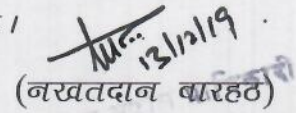 13/12/19
(नखतदान बारहठ)